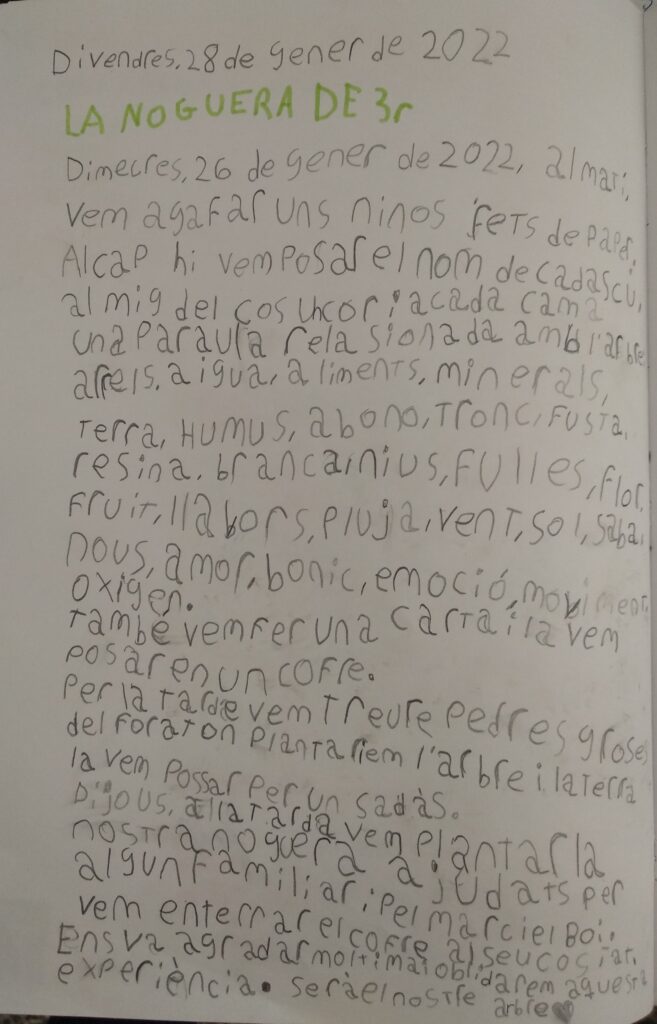 Divendres, 28 de gener de 2022
LA NOGUERA DE 3r
Dimecres, 26 de gener de 2022, al matí,
vem agafar uns ninos fets de paper.
Al cap hi vem posar el nom de cadascú,
al mig del cos un cor i a cada cama
una paraula relasionada amb l'arbre
arrels, aigua, aliments, minerals,
terra, HUMUS, abono, tronc, fusta,
resina, branca, nius, fulles, flor,
fruit, llabors, pluja, vent, sol, saba,
nous, amor, bonic, emoció, moviment,
oxigen.
També vem fer una carta i la vem
posar en un cofre.
Per la tarde vem treure pedres groses
del forat on plantariem l'arbre i la terra
la vem possar per un sadàs.
Dijous, a la tarda vem plantar la
nostra noguera ajudats per
algun familiar i pel Marc i el Boi.
vem enterrar el cofre al seu costat.
Ens va agradar molt i mai oblidarem aquesta
experiència. serà el nostre arbre